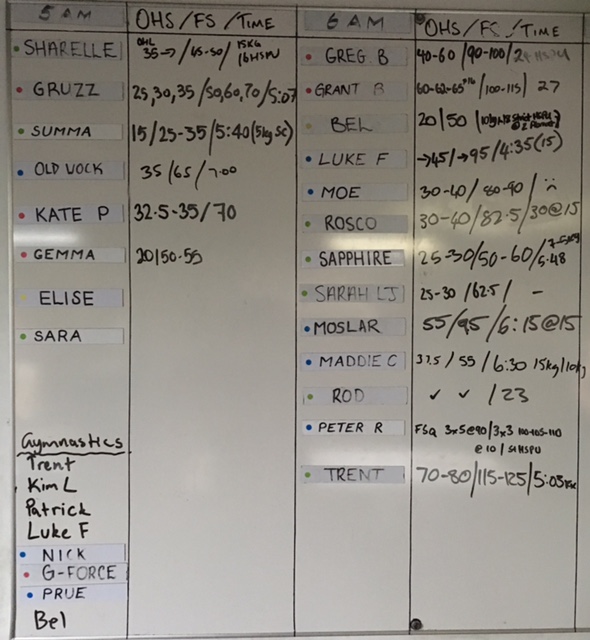 5 AM OHS/FS/TIME
SHARELLE OHL 35→/45-50/15KG 16HSPU
GRUZZ 25,30,35/50,60,70/5:07
SUMMA 15/25-35/5:40(5kg SC)
OLD VOCK 35/65/7:00
KATE P 32.5-35/70
GEMMA 20/50-55
ELISE
SARA
Gymnastics
Trent
Kim L
Patrick
Luke F
NICK
G-FORCE
PRUE
Bel
6 AM OHS/FS/TIME
GREG B 40-60/90-100/
GRANT B 60-62-65/100-115/27
BEL 20/50
LUKE F →45/→95/4:35(15)
MOE 30-40/80-90/
ROSCO 30-40/82.5/30@15
SAPPHIRE 25-30/50-60/5:48
SARAH LJ 25-30/62.5/-
MOSLAR 55/95/6:15@15
MADDIE C 37.5/55/6:30 15kg/10kg
ROD ✓ ✓ /23
PETER R FSQ 3x5@90/3x3 100-105-110
@10/51HSPU
TRENT 70-80/115-125/5:05